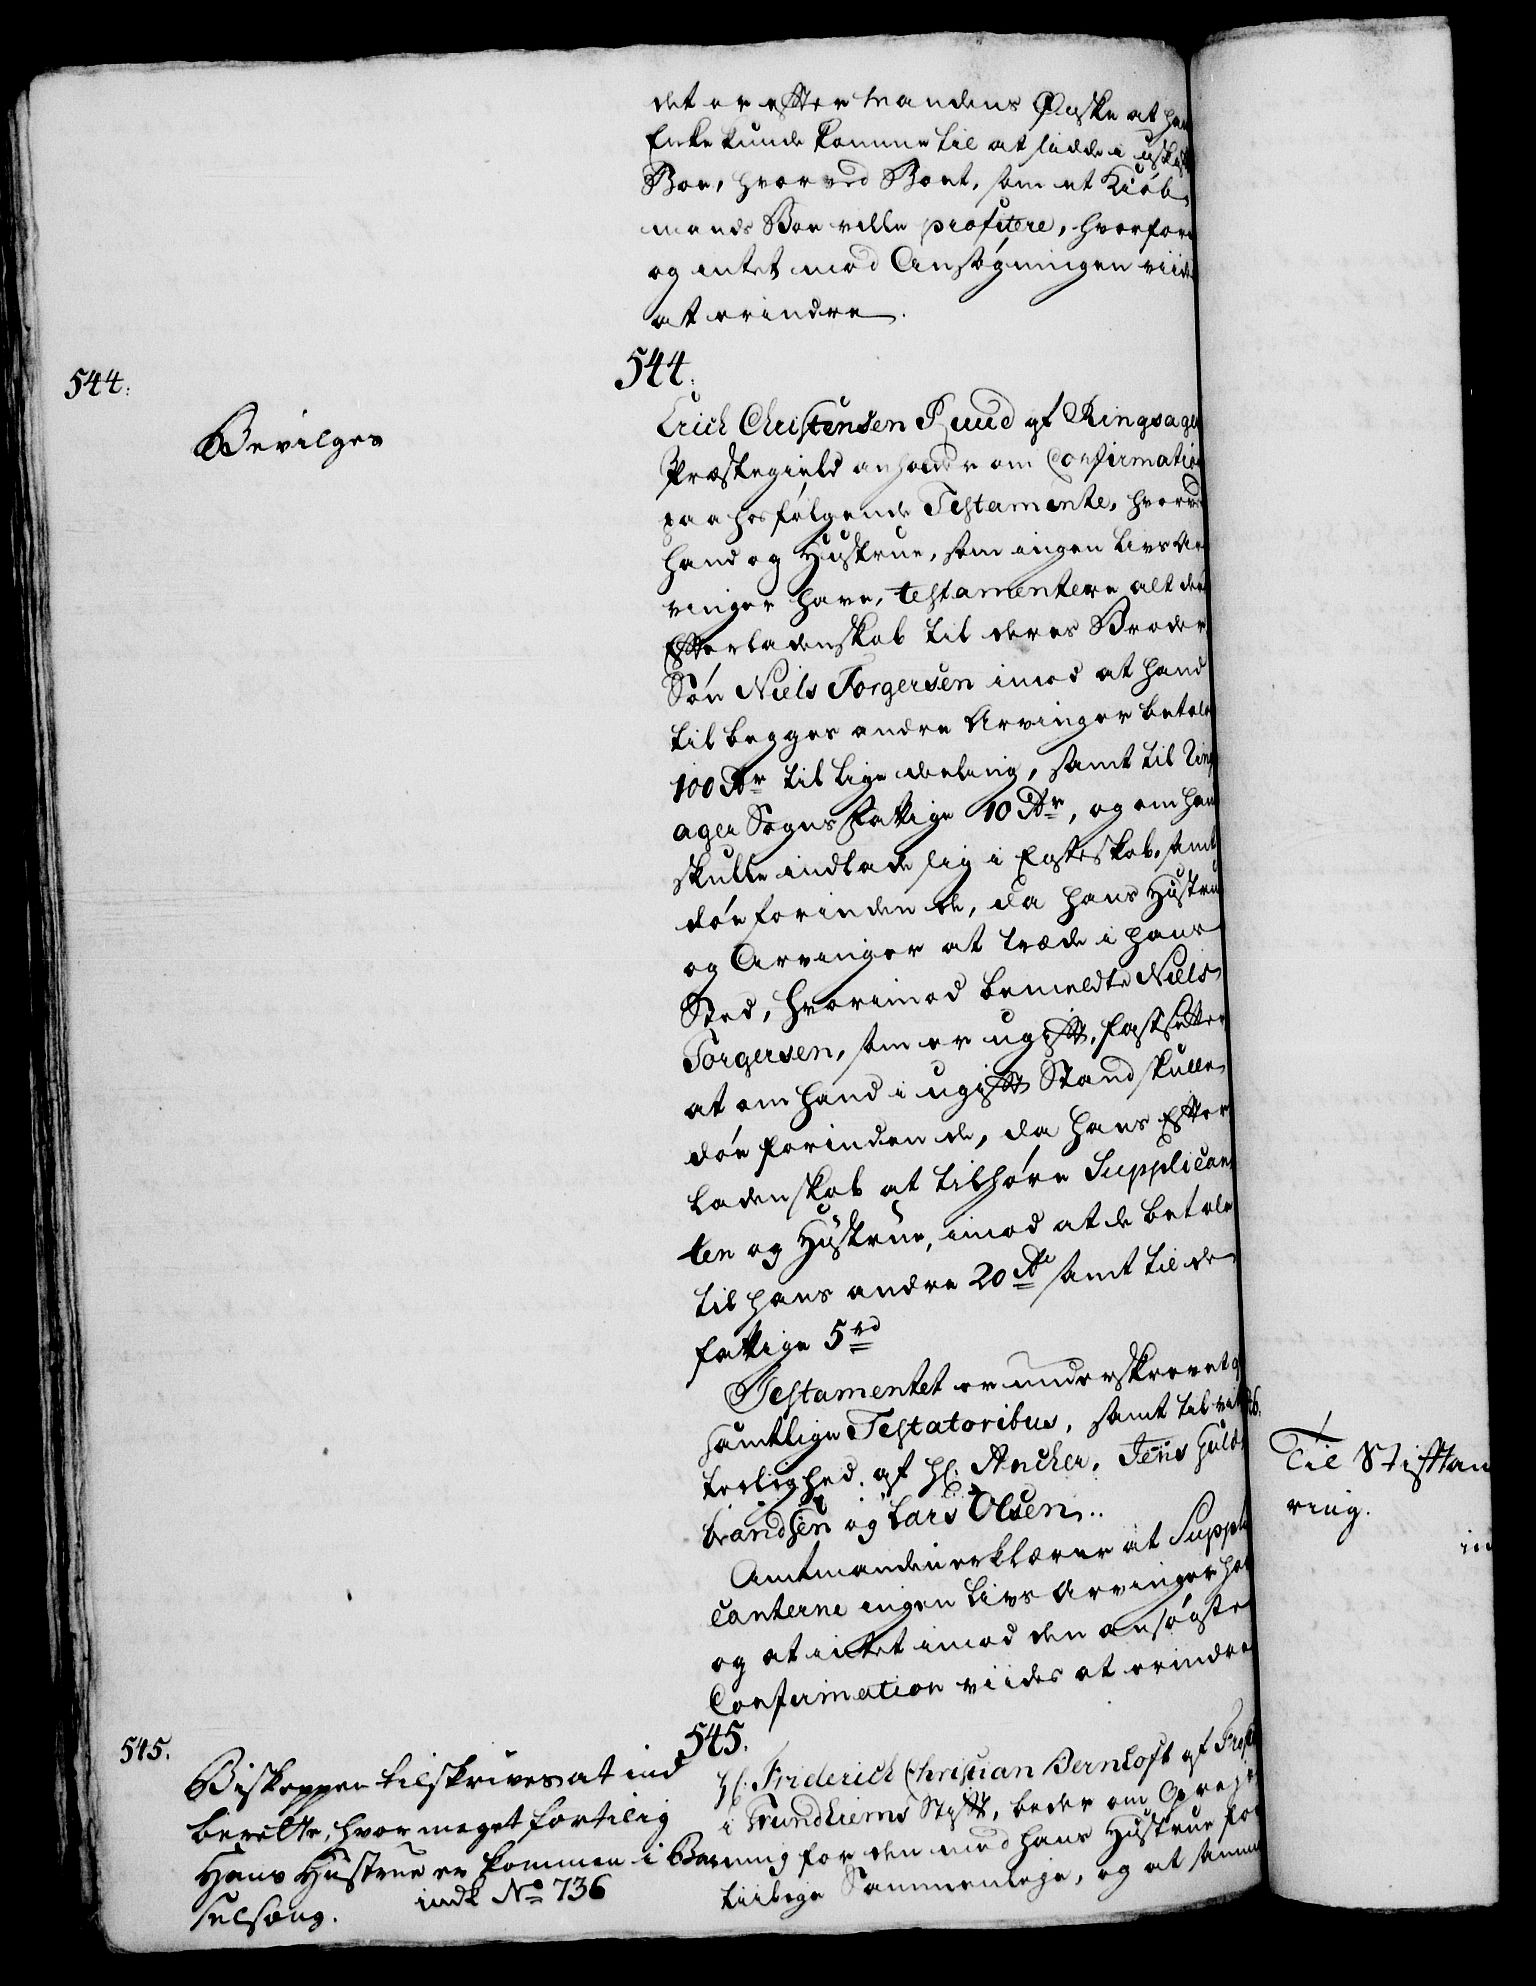 det er efter Mandens Ønske at han
Enke kunde komme til at sidde i uskift
Boe, hvorved Boet, som et Kiøb-
mands Boe ville profitere, hvorfore
og intet mod Ansøgningen viides
at erindre.
544.
544.
Bevilges
Erich Christensen Ruud af Ringsager
Præstegield anholder om Confirmation
paa hosfølgende Testamente, hvorved
hand og Hustrue, som ingen Livs Ar-
vinger have, testamentere alt deres
Efterladenskab til deres Broder
Søn Niels Torgersen imod at hand
til begges andre Arvinger betaler
100 Rdr til lige deeling, samt til Rings
ager Sogns Fattige 10 Rdr, og om han
skulle indlade sig i Egteskab, samt
døe forinden de, da hans Hustrue
og Arvinger at træde i hans
Sted, hvorimod bemeldte Niels
Torgersen, som er ugift, fastsetter
at om hand i ugift Stand skulle
døe forinden de, da hans Efter
ladenskab at tilhøre Supplican
ten og Hustrue, imod at de betale
til hans andre 20 Rdr samt til de
fattige 5 rd
Testamentet er underskrevet af
samtlige Testatoribus, samt til vit
terlighed af Hr. Ancher, Jens Guld-
brandsen og Lars Olsen.
Amtmanden erklærer at Suppli
canterne ingen Livs Arvinger har
og at intet imod den ansøgte
Confirmation viides at erindre
545.
545.
Biskoppen tilskrives at ind
berette, hvor meget fortilig
Hans Hustrue er kommen i Bar
selseng. indk No 736
Hr. Friderich Christian Bernhoft af
i Trundhiems Stift, beder om Oprejs
ning for den med hans Hustrue for
tiilige Sammenleje, og at samme
Til Stifftam
ring.